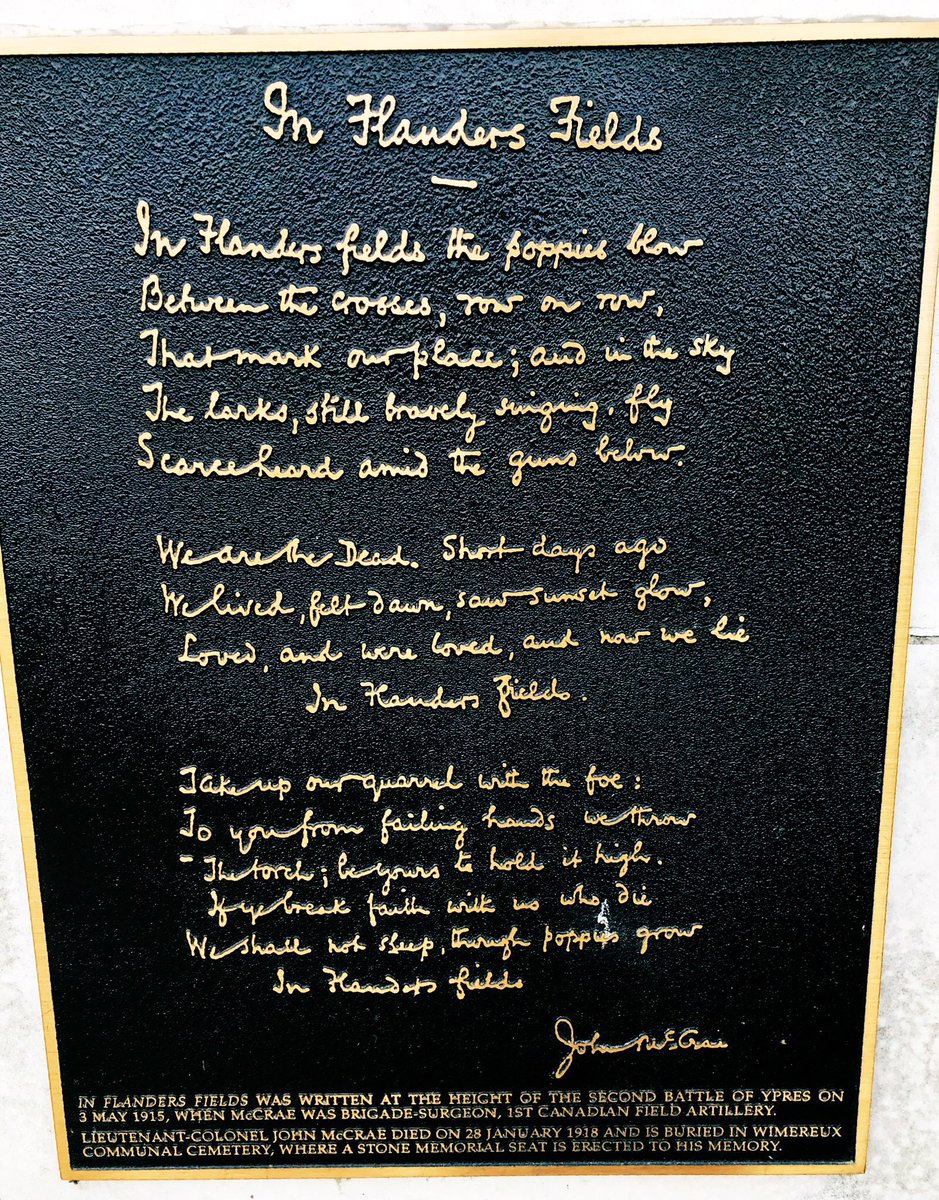 In Flanders Fields
In Flanders fields the poppies blow
Between the crosses, row on row,
That mark our place; and in the sky
The larks, still bravely singing, fly
Scarce heard amid the guns below.
We are the Dead. Short days ago
We lived, felt dawn, saw sunset glow,
Loved, and were loved, and now we lie
In Flanders Fields.
Take up our quarrel with the foe:
To you from failing hands we throw
The torch; be yours to hold it high.
If ye break faith with us who die
We shall not sleep, though poppies grow
In Flanders fields
John McCrae
IN FLANDERS FIELDS WAS WRITTEN AT THE HEIGHT OF THE SECOND BATTLE OF YPRES ON
3 MAY 1915, WHEN McCRAE WAS BRIGADE-SURGEON, 1ST CANADIAN FIELD ARTILLERY.
LIEUTENANT-COLONEL JOHN McCRAE DIED ON 28 JANUARY 1918 AND IS BURIED IN WIMEREUX
COMMUNAL CEMETERY, WHERE A STONE MEMORIAL SEAT IS ERECTED TO HIS MEMORY.